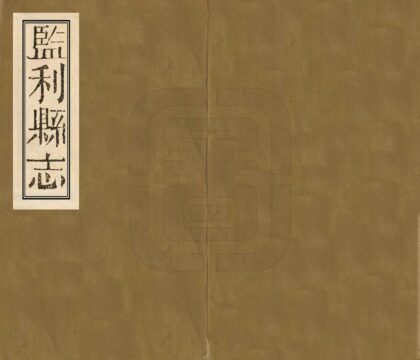 監利縣志